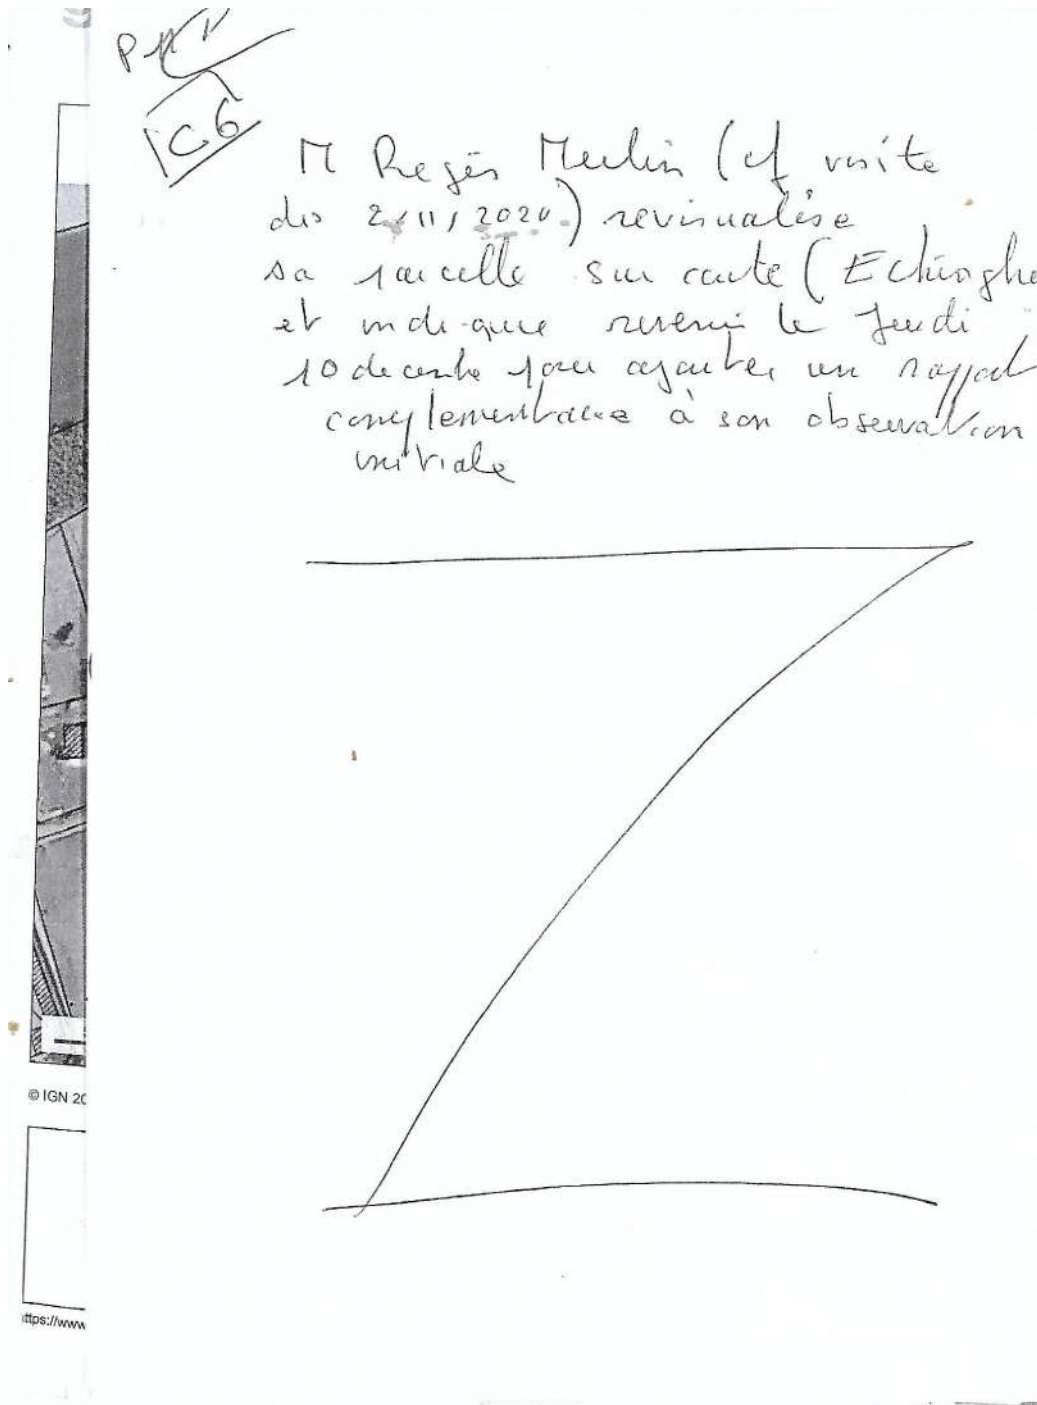 C6
M Regis Merlin (cf visite
du 2/11/2020) revisualise
sa parcelle sur carte (Echinghe
et indique revenir le Jeudi
10 decembre pour ajouter un rapport
complementaire à son observation
initiale
© IGN 20
ttps://www